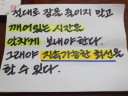 첫대로 잠을 줄이지 말고
깨어있는 시간을
알차게 보내야한다.
그래야 지속가능한 최선을
할 수 있다.